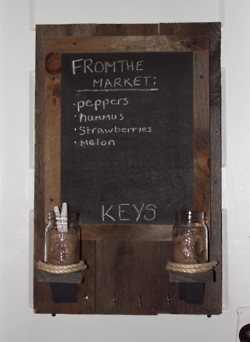 FROM THE
MARKET:
• peppers
• hummus
• Strawberries
• Melon
KEYS